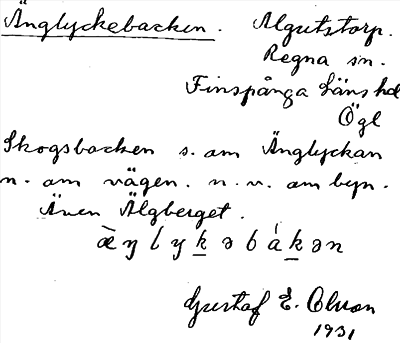 Änglyckebacken. Algutstorp.
Regna sn.
Finspånga läns hd
Ögl
Skogsbacken s. om Änglyckan
n. om vägen. n. v. om byn.
Även Älgberget.
æ̀ŋlyk̲əbák̲ən
Gustaf E. Olsson
1931